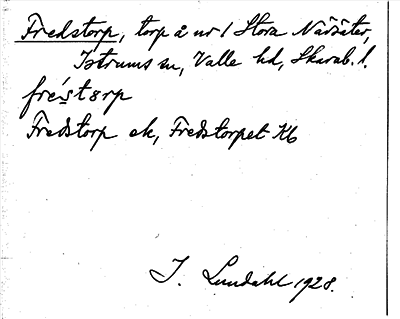 Fredstorp, torp å nr 1 Stora Nävsäter,
Istrums sn, Valle hd, Skarab. l.
fre´stɵrp
Fredstorp ek, Fredstorpet Kb
I. Lundahl 1928.